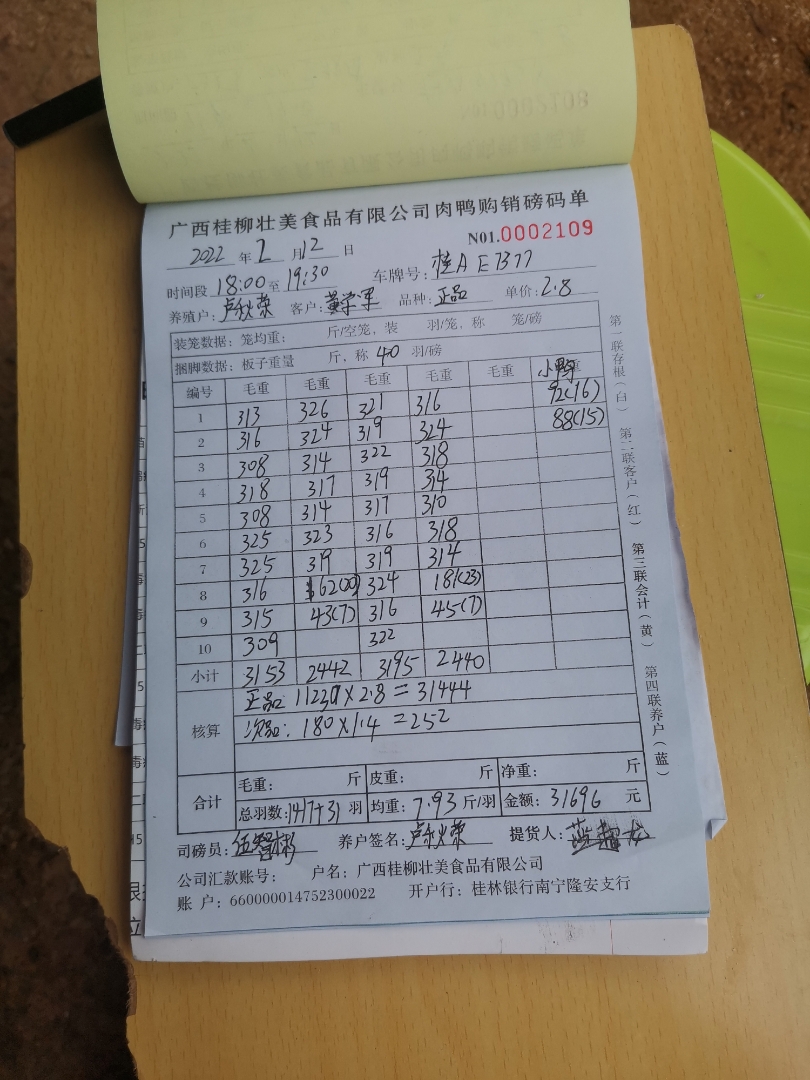 广西桂柳壮美食品有限公司肉鸭购销磅码单
2022 年 2 月 12 日 N01.0002109
时间段 18:00 至 19:30 车牌号: 桂A E7B77
养殖户: 卢秋荣 客户: 黄学军 品种: 正品 单价: 2.8
装笼数据: 笼均重: 斤/空笼, 装 羽/笼, 称 笼/磅
捆脚数据: 板子重量 斤, 称 40 羽/磅
编号 毛重 毛重 毛重 毛重 毛重 小鸭重
1 313 326 321 316 92(16)
2 316 324 319 324 88(15)
3 308 314 322 318
4 318 317 319 314
5 308 314 317 310
6 325 323 316 318
7 325 319 319 314
8 316 162(20) 324 181(23)
9 315 43(7) 316 45(7)
10 309 322
小计 3153 2442 3195 2440
核算
正品 11230 X 2.8 = 31444
次品: 180 X 1.4 = 252
合计
毛重: 斤 皮重: 斤 净重: 斤
总羽数: 1417+31 羽 均重: 7.93 斤/羽 金额: 31696 元
司磅员: 伍智彬 养户签名: 卢秋荣 提货人:
公司汇款账号: 户名: 广西桂柳壮美食品有限公司
账 户: 660000014752300022 开户行: 桂林银行南宁隆安支行
第一联存根(白) 第二联客户(红) 第三联会计(黄) 第四联养户(蓝)